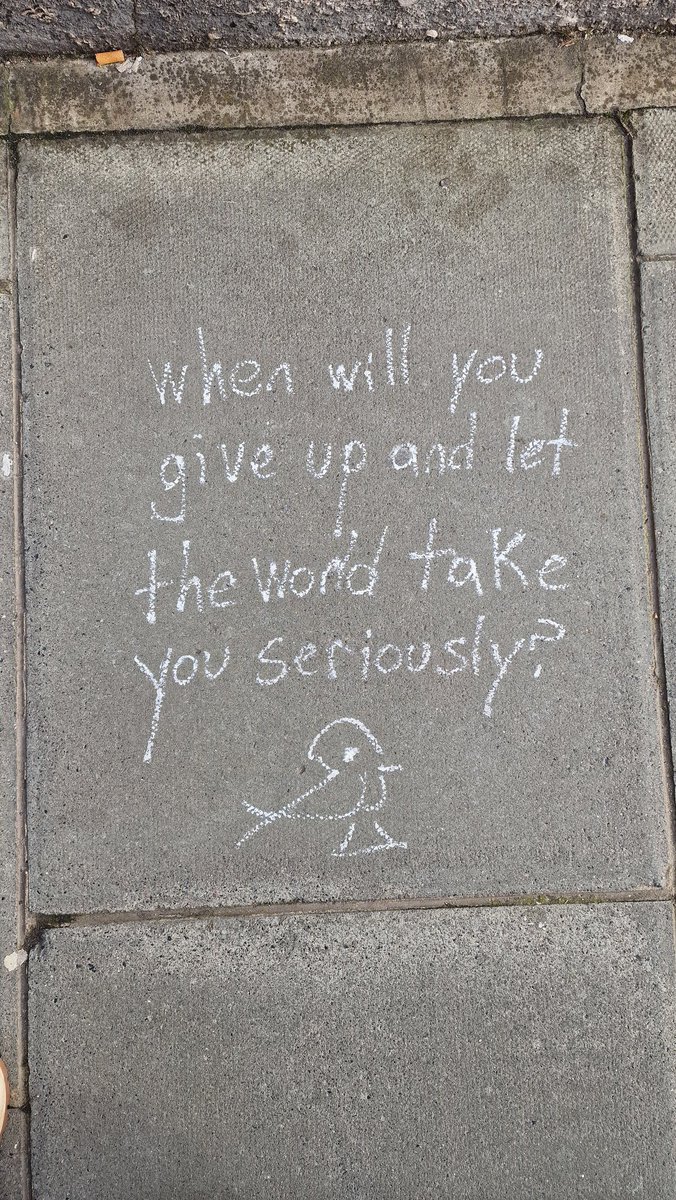 when will you
give up and let
the world take
you seriously?